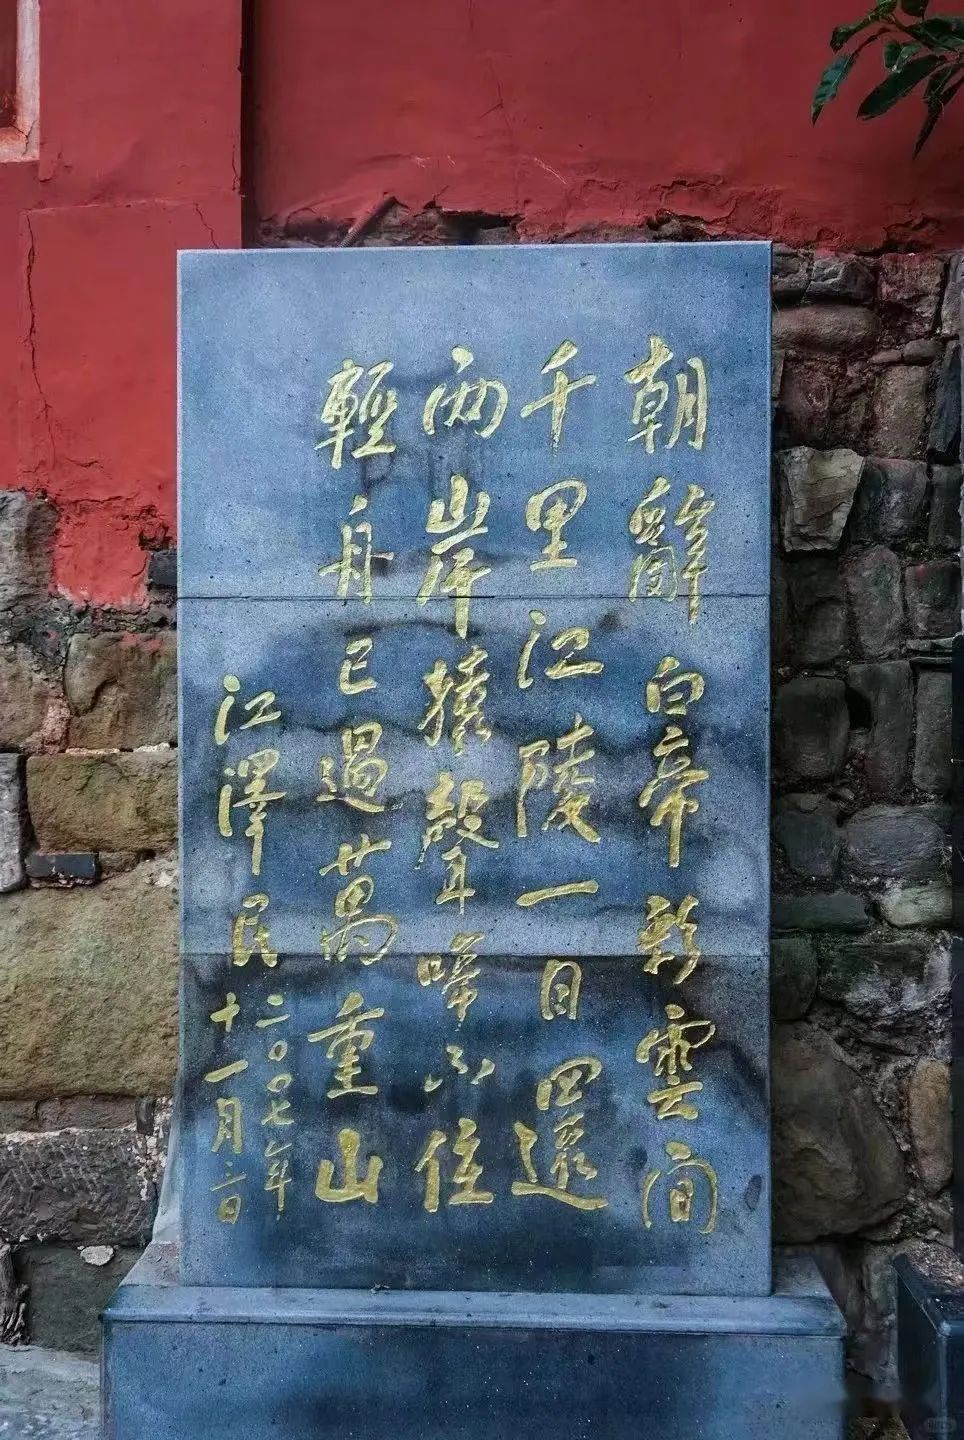 朝辭白帝彩雲間
千里江陵一日還
两岸猿聲啼不住
輕舟已過萬重山
江澤民
二〇〇七年
十一月二日